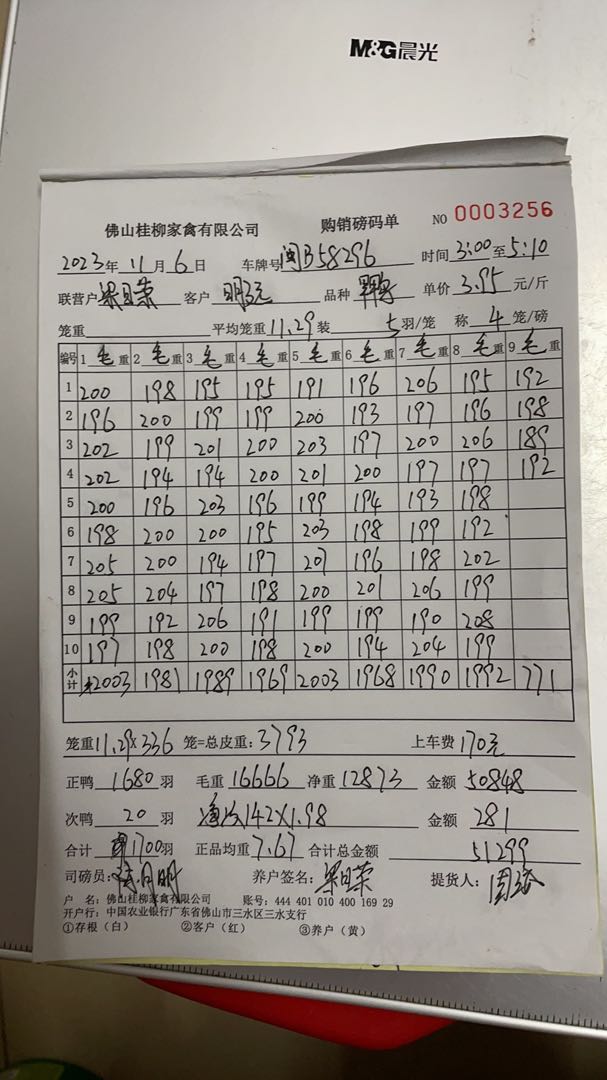 M&G晨光
佛山桂柳家禽有限公司 购销磅码单 NO 0003256
2023年11月6日 车牌号闽B58296 时间3:00至5:10
联营户 客户 品种 单价3.95元/斤
笼重 平均笼重11.29装 5羽/笼 称4笼/磅
编号 1毛重 2毛重 3毛重 4毛重 5毛重 6毛重 7毛重 8毛重 9毛重
1 200 198 195 195 191 196 206 195 192
2 196 200 199 199 200 193 197 196 198
3 202 199 201 200 203 197 200 206 189
4 202 194 194 200 201 200 197 197 192
5 200 196 203 196 199 194 193 198
6 198 200 200 195 203 198 199 192
7 205 200 194 197 207 196 198 202
8 205 204 197 198 200 201 206 199
9 199 192 206 191 199 199 190 208
10 197 198 200 198 200 194 204 199
小计 2003 1981 1989 1969 2003 1968 1990 1992 771
笼重11.29×336笼=总皮重:3793 上车费170元
正鸭1680羽 毛重16666净重12873 金额50848
次鸭20羽 142×1.98 金额281
合计1700羽 正品均重7.67 合计总金额51299
司磅员: 养户签名: 提货人:
户 名:佛山桂柳家禽有限公司 账号:444 401 010 400 169 29
开户行:中国农业银行广东省佛山市三水区三水支行
①存根(白) ②客户(红) ③养户(黄)